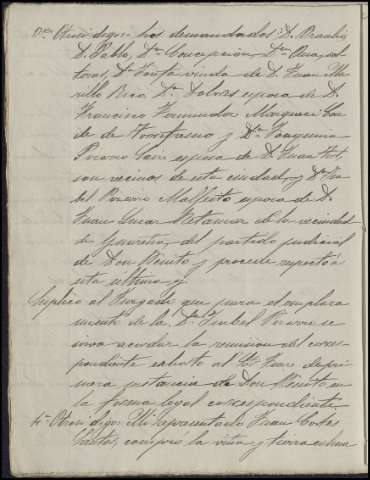 Otrosi digo: Los demandados D. Braulio
D. Pablo, Dª Concepcion, Dª
Dª viuda de D. Juan Mu-
rillo Rico Dª Dolores esposa de D.
Francisco Fernandez Marques Con-
de de Torrefresno y Dª Joaquina
esposa de D. Juan
son vecinos de esta ciudad, y Dª Isa-
bel esposa de D.
Juan de la vecindad
de Guareña, del partido judicial
de Don Benito y procede respecto á
esta ultima y
Suplico al Juzgado que para el emplaza
miento de la Dª Isabel Pizarro se
sirva acordar la remision del corres-
pondiente exhorto al Sor Juez de pri-
mera instancia de Don Benito, en
la forma legal correspondiente
4º Otrosi digo: Mi representado Juan Cortes
compró la viña y tierra